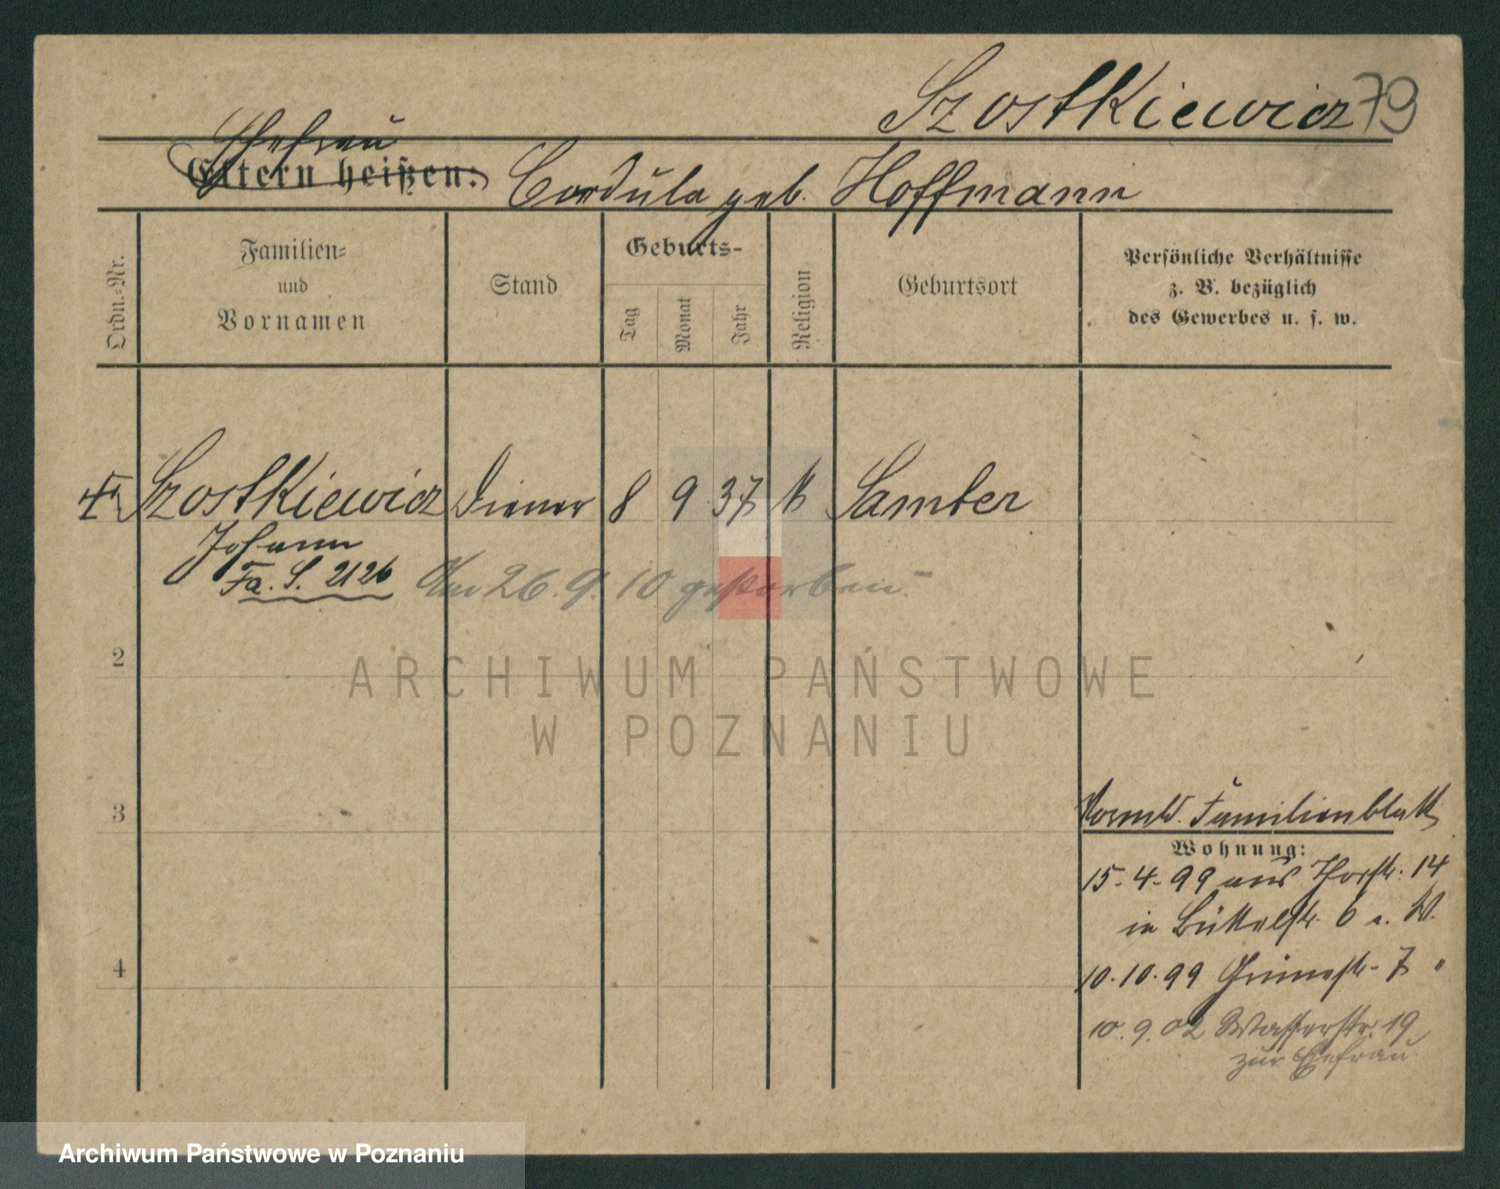 Szostkiewicz 79
Ehefrau
Eltern heißen: Cordula geb. Hoffmann
Ordn.-Nr.
Familien- und Vornamen
Stand
Geburts-
Tag
Monat
Jahr
Religion
Geburtsort
Persönliche Verhältnisse
z. B. bezüglich
des Gewerbes u. s. w.
Szostkiewicz Diener 8 9 37 k Samter
Johann
Fa. S. 2126
Am 26.9.10 gestorben
2
ARCHIWUM PAŃSTWOWE
W POZNANIU
3
Familienblatt
Wohnung:
15.4.99 aus Thorstr. 14
in Büttelstr. 6 a. W.
4
10.10.99 Grünestr. 7 "
10.9.02 Wasserstr. 19
zur Ehefrau
Archiwum Państwowe w Poznaniu